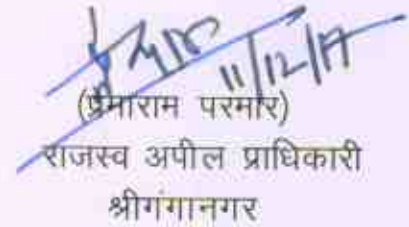 11/12/17
(प्रेमाराम परमार)
राजस्व अपील प्राधिकारी
श्रीगंगानगर